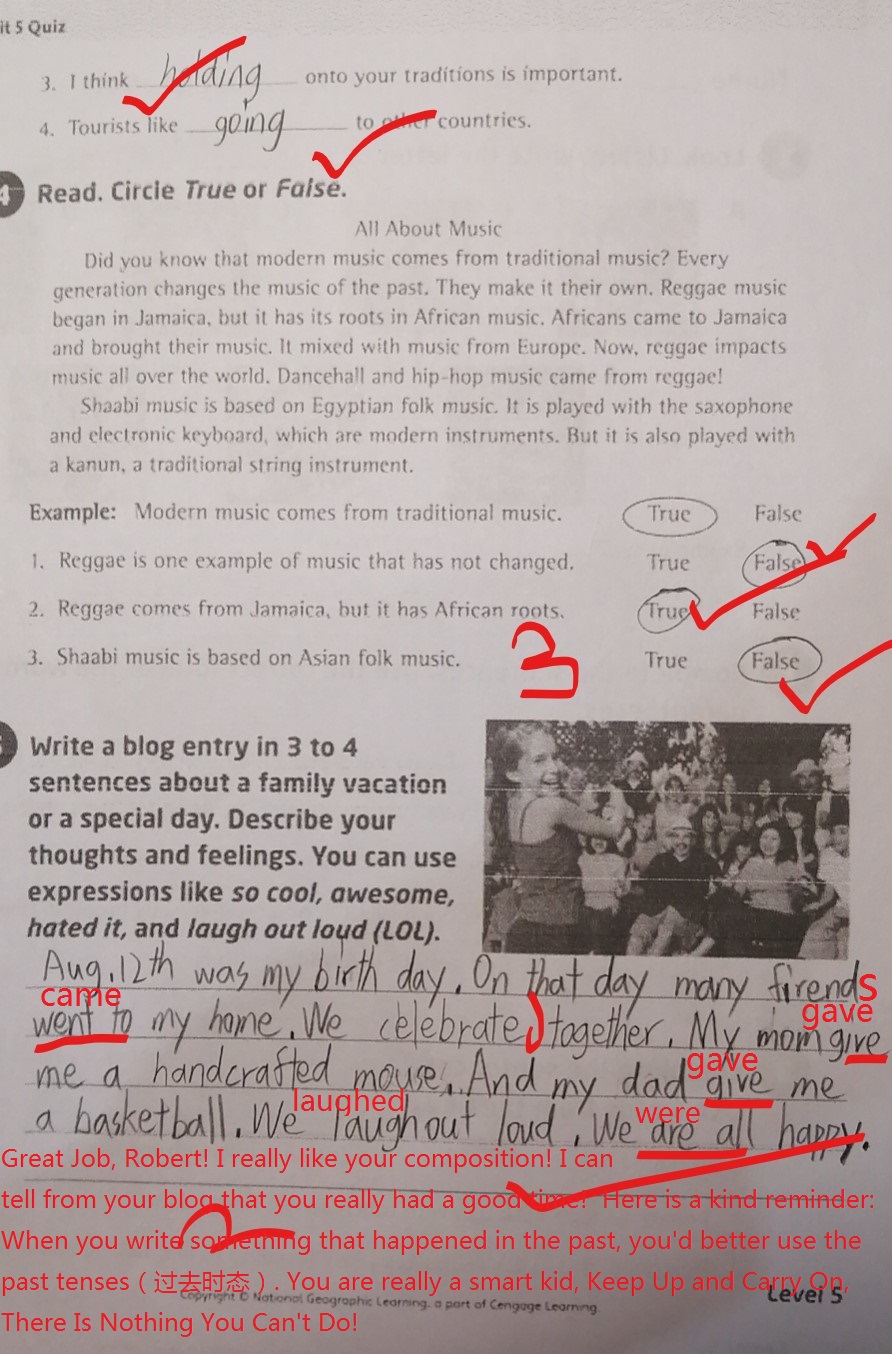 it 5 Quiz
3. I think holding onto your traditions is important.
4. Tourists like going to other countries.
4 Read. Circle True or False.
All About Music
Did you know that modern music comes from traditional music? Every
generation changes the music of the past. They make it their own. Reggae music
began in Jamaica, but it has its roots in African music. Africans came to Jamaica
and brought their music. It mixed with music from Europe. Now, reggae impacts
music all over the world. Dancehall and hip-hop music came from reggae!
Shaabi music is based on Egyptian folk music. It is played with the saxophone
and electronic keyboard, which are modern instruments. But it is also played with
a kanun, a traditional string instrument.
Example: Modern music comes from traditional music. True False
1. Reggae is one example of music that has not changed. True False
2. Reggae comes from Jamaica, but it has African roots. True False
3. Shaabi music is based on Asian folk music. True False
3
Write a blog entry in 3 to 4
sentences about a family vacation
or a special day. Describe your
thoughts and feelings. You can use
expressions like so cool, awesome,
hated it, and laugh out loud (LOL).
Aug.12th was my birth day. On that day many firends
came gave
went to my home. We celebrated together. My mom give
gave
me a handcrafted mouse. And my dad give me
laughed were
a basketball. We laugh out loud. We are all happy.
Great Job, Robert! I really like your composition! I can
tell from your blog that you really had a good time! Here is a kind reminder:
2
When you write something that happened in the past, you'd better use the
past tenses（过去时态）. You are really a smart kid, Keep Up and Carry On,
Copyright © National Geographic Learning, a part of Cengage Learning Level 5
There Is Nothing You Can't Do!